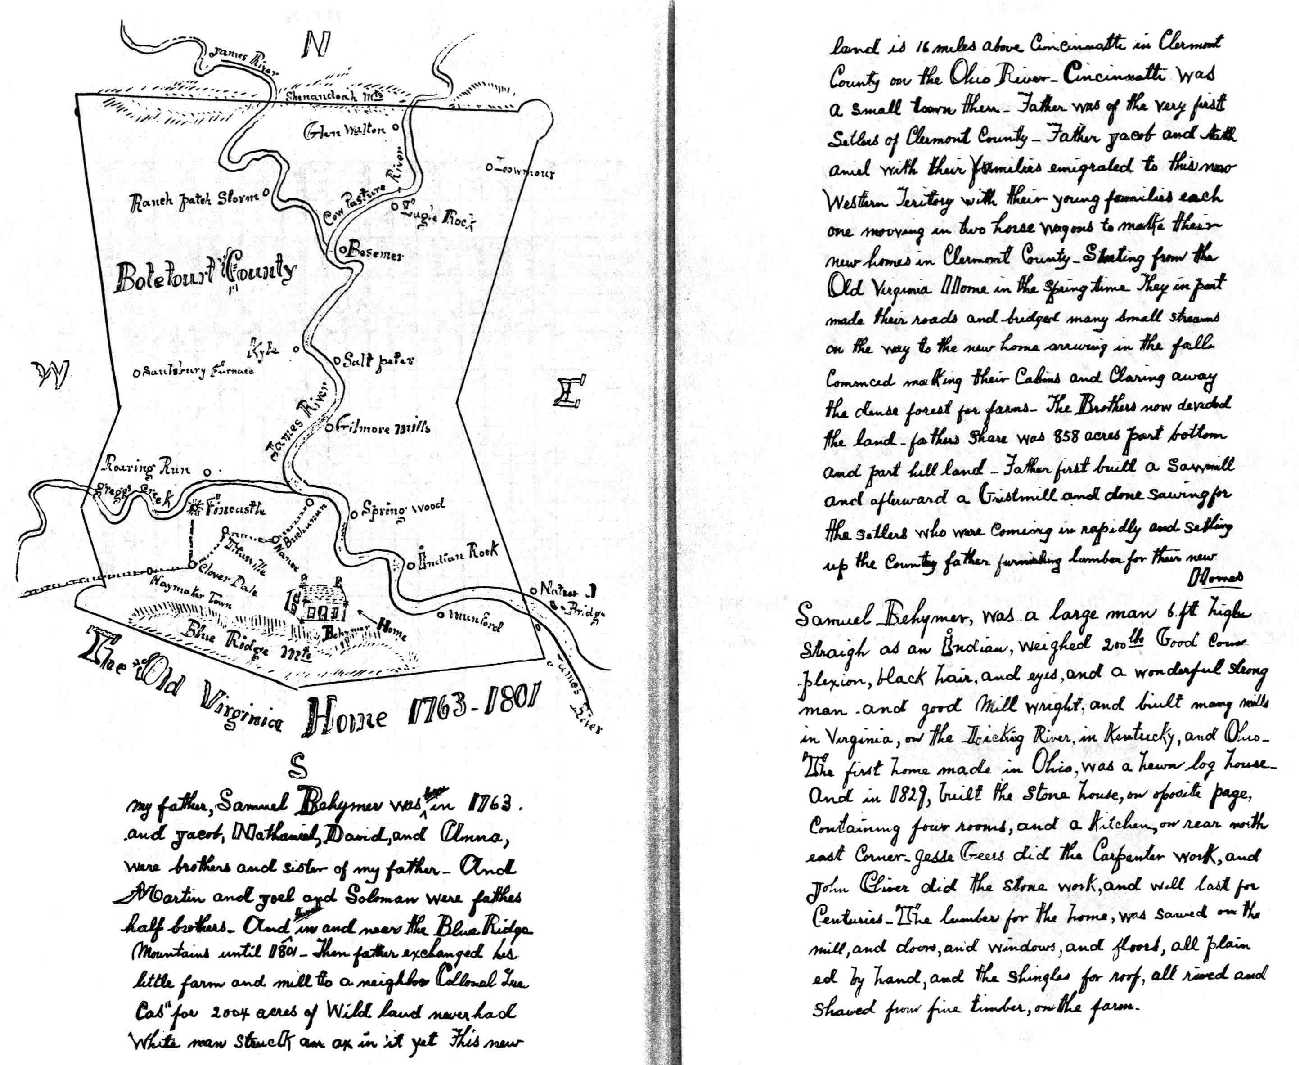 N
James River
Shenandoah Mts
Glen Walton
Cow Pasture River
Ranch patch Storm
Eagle Rock
Bosemer
Botetourt County
W
E
Kyle
Salt peter
Santsbury Furnace
James River
Gilmore Mills
Roaring Run
Creek
Fincastle
Spring wood
Buchanan
Nance
Titusville
Indian Rock
Clover Dale
Haymaker Town
Natural
Bridge
Munford
Blue Ridge Mts
Behymer Home
James River
The Old Virginia Home 1763-1801
S
my father, Samuel Behymer was born in 1763.
and Jacob, Nathaniel, David, and Anna,
were brothers and sister of my father - And
Martin and Joel and Soloman were fathes
half brothers - And lived in and near the Blue Ridge
Mountains until 1801 - Then father exchanged his
little farm and mill to a neighbor Collonal Lu
Cas" for 2004 acres of Wild land never had
White man struck an ax in it yet This new
land is 16 miles above Cincinnatti in Clermont
County on the Ohio River - Cincinnatti was
a small town then - Father was of the very first
Setlers of Clermont County - Father Jacob and Nath
aniel with their families emigrated to this new
Western Teritory with their young families each
one moving in two horse wagons to make their
new homes in Clermont County - Starting from the
Old Virginia Home in the springtime They in part
made their roads and bridged many small streams
on the way to the new home arriving in the fall
Comnced making their Cabins and Claring away
the dense forest for farms - The Brothers now devided
the land - fathers share was 858 acres part bottom
and part hill land - Father first built a Sawmill
and afterward a Gristmill and done sawing for
the setlers who were coming in rapidly and setling
up the Country father furnishing lumber for their new
Homes
Samuel Behymer, was a large man 6 ft highe
straigh as an Indian, weighed 200 lbs Good Com
plexion, black hair, and eyes, and a wonderful strong
man - and good Mill wright, and built many mills
in Virginia, on the Licking River, in Kentucky, and Ohio -
The first home made in Ohio, was a hewn log house -
And in 1827, built the stone house, on oposite page,
Containing four rooms, and a Kitchen, on rear north
east Corner - Jesse Geers did the Carpenter work, and
John Oliver did the stone work, and will last for
Centuries - The lumber for the home, was sawed on the
mill, and doors, and windows, and floors, all plain
ed by hand, and the shingles for roof, all rived and
Shaved from fine timber, on the farm.